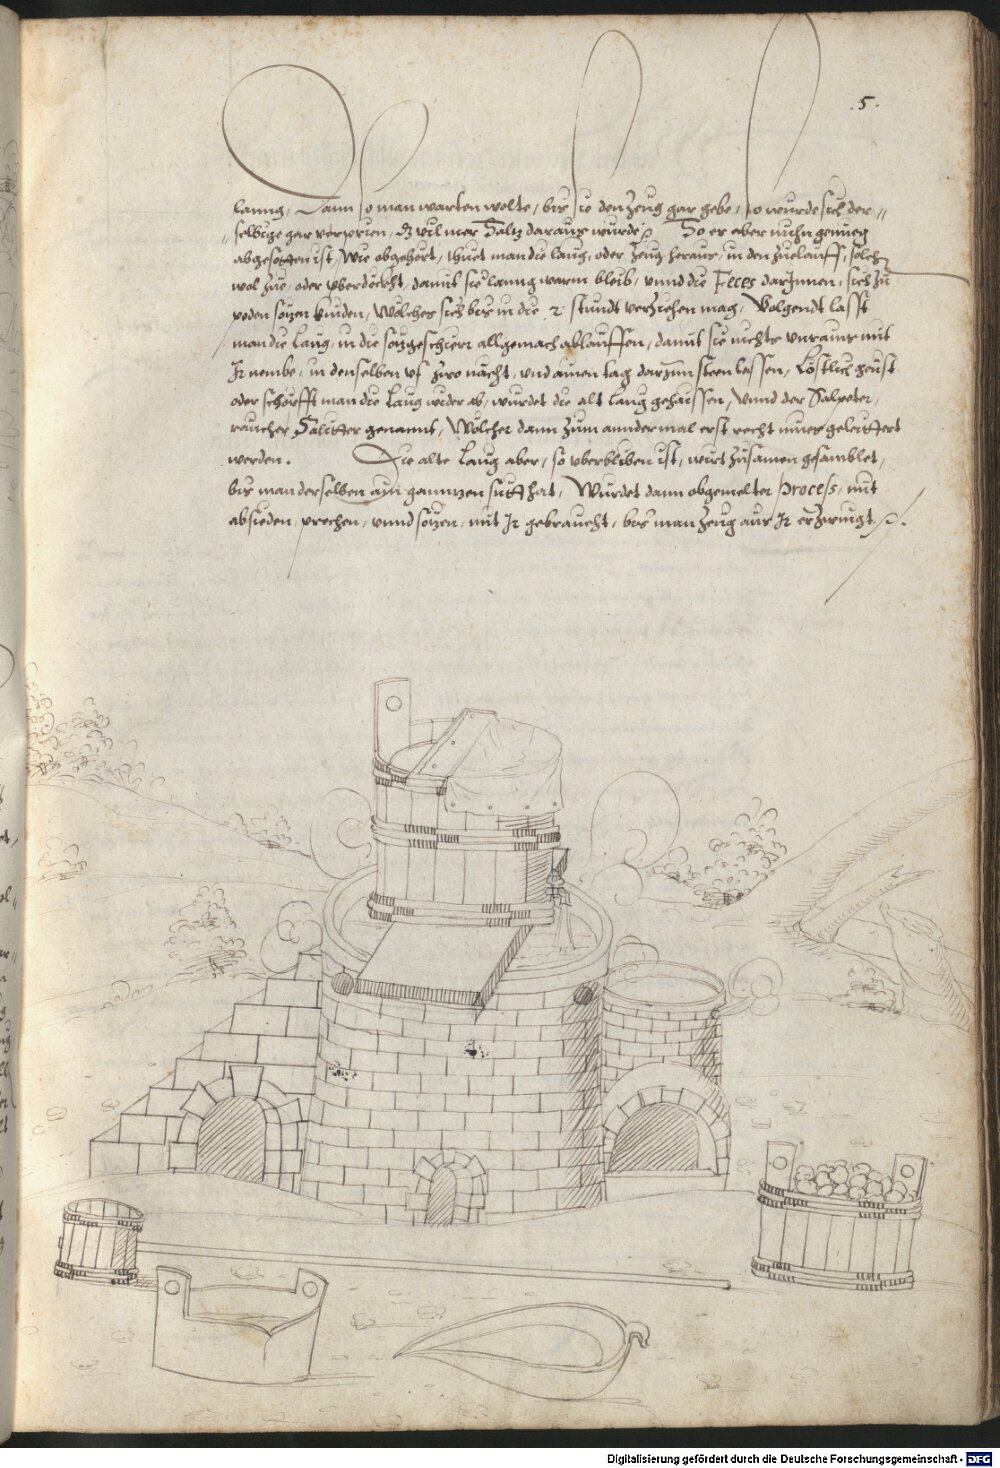 .5.
lanng, Dann so man warten wolte, bis sie den Zeug gar gebe, so wurde sich der„
„selbige gar verprien, vil mer Saltz daraus wurde So er aber nuhn genueg
abgesotten ist, Wie obgehört, thuet man die laug, oder Zeug heraus, in den Zuelauff, solchen
wol Zue, oder yberdöckht, damit sie lanng warm bleib, vnnd die Feces darInnen, sich Zu
poden sözen künden, Wölches sich bis in die 2 stundt verZiehen mag, Volgendt lasst
man die Laug, in die sözgeschierr allgemach ablauffen, damit sie nichts vnrains mit
Ir nembe, in denselben vf Zwo nächt, vnd ainen tag darZum steen lassen, Löstlich
oder schöpfft man die Laug wider ab, würdet die alt Laug gehaissen, Vnnd der Salpeter,
raucher Saliter genannt, Wölcher dann Zum anndermal erst recht mues geleuttert
werden. Die alte Laug aber, so yberbliben ist, würt Zusamen gesamblet,
bis man derselben ain ganntzen sutt hat, Würdet dann obgemelter Process, mit
absieden, prechen, vnnd sözen, mit Ir gebraucht, bis man Zeug aus Ir erZwingt
Digitalisierung gefördert durch die Deutsche Forschungsgemeinschaft - DFG